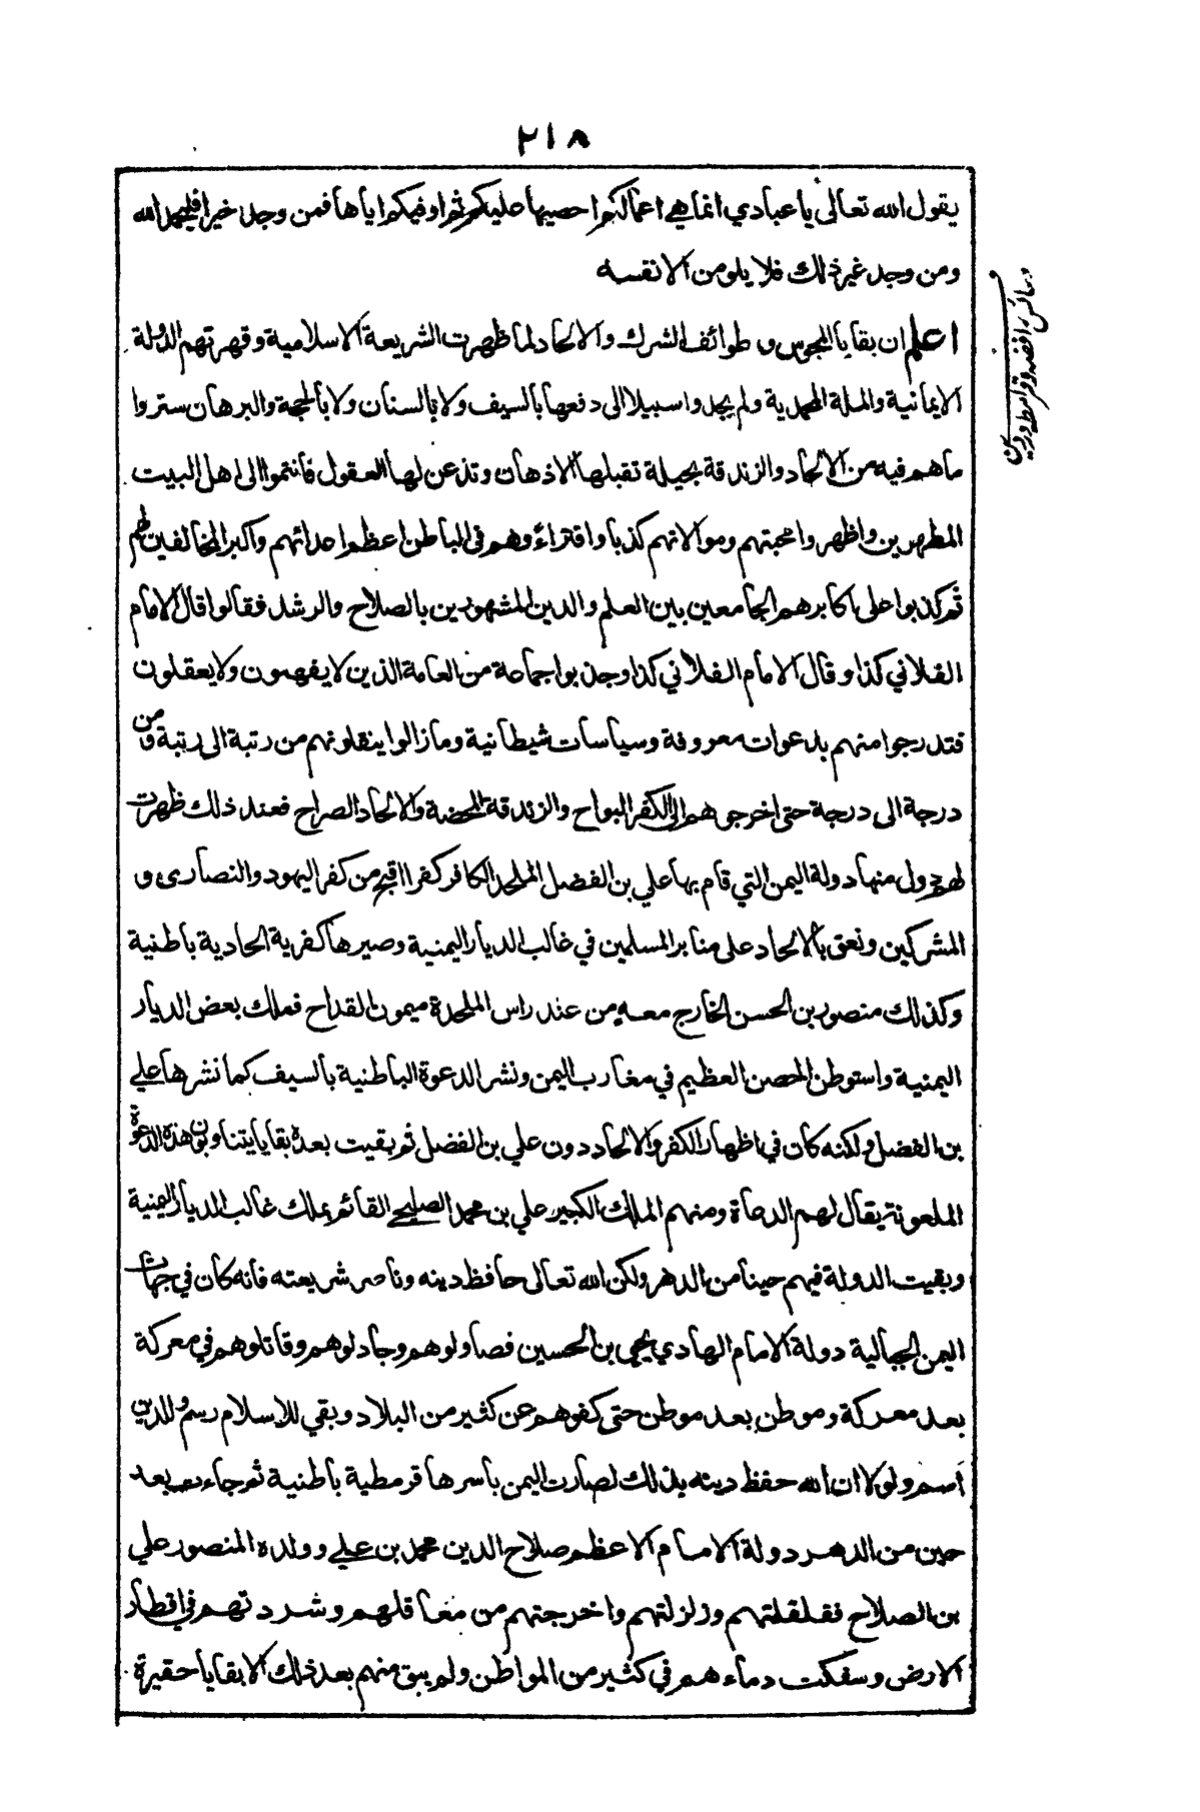 ٢١٨
يقول الله تعالى يا عبادي انما هي اعمالكم احصيها عليكم ثم اوفيكم اياها فمن وجد خيرا فليحمد الله
ومن وجد غير ذلك فلا يلومن الا نفسه
اعلم ان بقايا المجوس و طوائف الشرك والالحاد لما ظهرت الشريعة الاسلامية وقهرتهم الدولة
الايمانية والملة المحمدية ولم يجدوا سبيلا الى دفعها بالسيف ولا بالسنان ولا بالحجة والبرهان ستروا
ما هم فيه من الالحاد والزندقة بحيلة تقبلها الاذهان وتذعن لها العقول فانتموا الى اهل البيت
المطهرين واظهروا محبتهم وموالاتهم كذبا وافتراء وهم في الباطن اعظم اعدائهم واكبر المخالفين لهم
ثم كذبوا على اكابرهم الجامعين بين العلم والدين المشهورين بالصلاح والرشد فقالوا قال الامام
الفلاني كذا وقال الامام الفلاني كذا وجذبوا جماعة من العامة الذين لا يفهمون ولا يعقلون
فتدرجوا منهم بدعوات معروفة وسياسات شيطانية وما زالوا ينقلونهم من رتبة الى رتبة ومن
درجة الى درجة حتى اخرجوهم الى الكفر البواح والزندقة المحضة والالحاد الصراح فعند ذلك ظهرت
لهم دول منها دولة اليمن التي قام بها علي بن الفضل الملحد الكافر كفرا اقبح من كفر اليهود والنصارى و
المشركين ونعق بالالحاد على منابر المسلمين في غالب الديار اليمنية وصيرها كفرية الحادية باطنية
وكذلك منصور بن الحسن الخارج معه من عند راس الملحدة ميمون القداح فملك بعض الديار
اليمنية واستوطن الحصن العظيم في مغارب اليمن ونشر الدعوة الباطنية بالسيف كما نشرها علي
بن الفضل ولكنه كان في اظهار الكفر والالحاد دون علي بن الفضل ثم بقيت بعده بقايا يتناوبون هذه الدعوة
الملعونة يقال لهم الدعاة ومنهم الملك الكبير علي بن محمد الصليحي القائم بملك غالب الديار اليمنية
وبقيت الدولة فيهم حينا من الدهر ولكن الله تعالى حافظ دينه وناصر شريعته فانه كان في جهات
اليمن الجبالية دولة الامام الهادي يحيى بن الحسين فصاولوهم وجادلوهم وقاتلوهم في معركة
بعد معركة وموطن بعد موطن حتى كفوهم عن كثير من البلاد وبقي للاسلام رسم وللدين
اسم ولولا ان الله حفظ دينه بذلك لصارت اليمن باسرها قرمطية باطنية ثم جاء بعد
حين من الدهر دولة الامام الاعظم صلاح الدين محمد بن علي وولده المنصور علي
بن الصلاح فقلقلتهم وزلزلتهم واخرجتهم من معاقلهم وشردتهم في اقطار
الارض وسفكت دماءهم في كثير من المواطن ولم يبق منهم بعد ذلك الا بقايا حقيرة